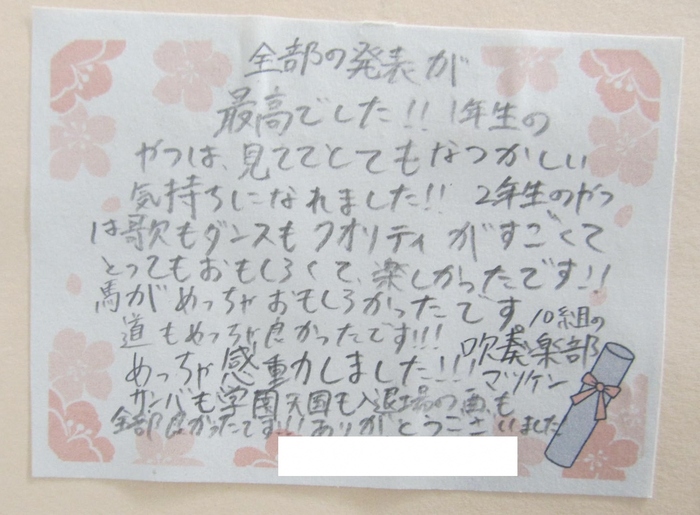 全部の発表が
最高でした!! 1年生の
やつは、見ててとてもなつかしい
気持ちになれました!! 2年生のやつ
は歌もダンスもクオリティがすごくて
とってもおもしろくて、楽しかったです!!
馬がめっちゃおもしろかったです 10組の
道もめっちゃ良かったです!!! 吹奏楽部
めっちゃ感動しました!!! マツケン
サンバも学園天国も入退場の曲も
全部良かったです!!! ありがとうございました